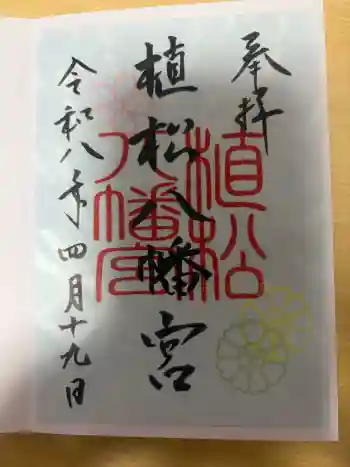 奉拝
植松八幡宮
植松
八幡宮
令和八年四月十九日